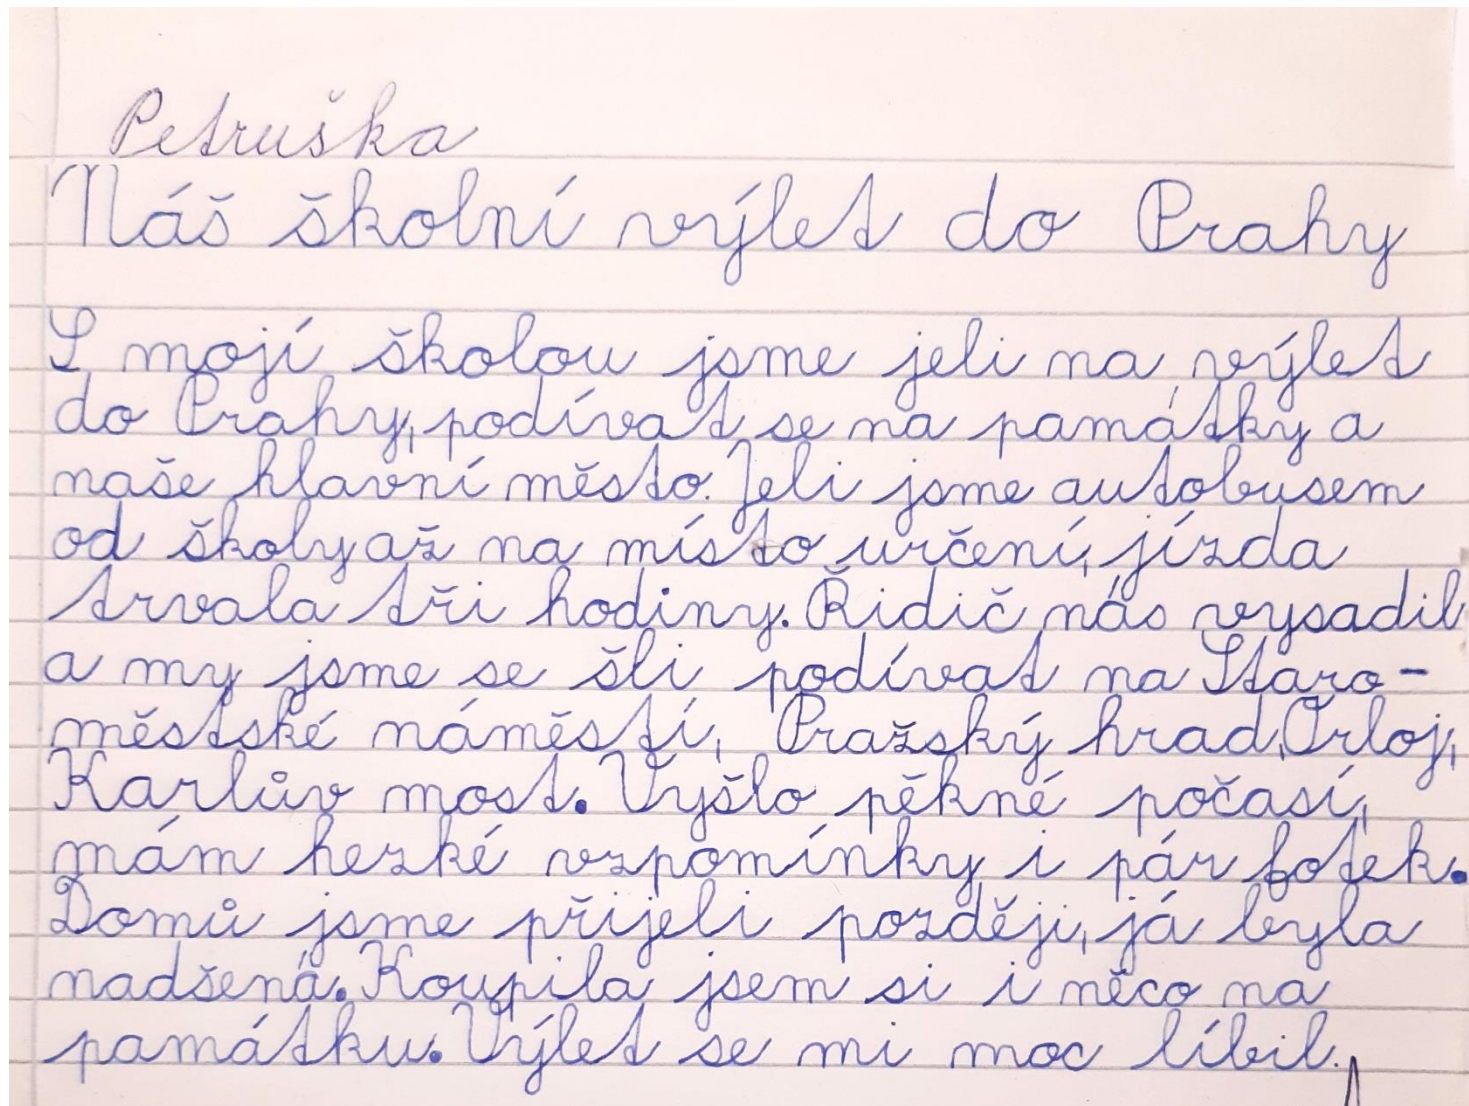 Petruška
Náš školní výlet do Prahy
S mojí školou jsme jeli na výlet
do Prahy, podívat se na památky a
naše hlavní město. Jeli jsme autobusem
od školy až na místo určení, jízda
trvala tři hodiny. Řidič nás vysadil
a my jsme se šli podívat na Staro-
městské náměstí, Pražský hrad, Orloj,
Karlův most. Vyšlo pěkné počasí,
mám hezké vzpomínky i pár fotek.
Domů jsme přijeli později, já byla
nadšená. Koupila jsem si i něco na
památku. Výlet se mi moc líbil.